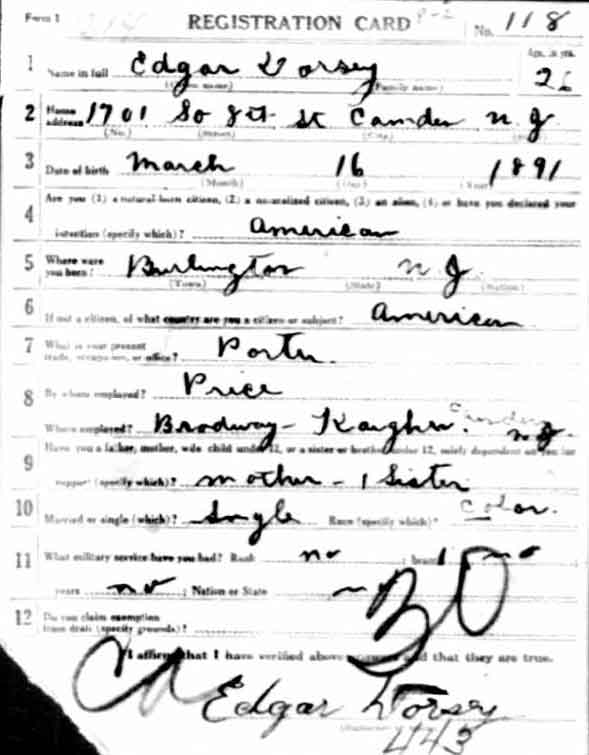 Form 1 REGISTRATION CARD No. 118
1 Name in full Edgar Dorsey Age, in yrs. 26
(Given name) (Family name)
2 Home address 1701 So 8th St Camden N.J
(No.) (Street) (City) (State)
3 Date of birth March 16 1891
(Month) (Day) (Year)
4 Are you (1) a natural-born citizen, (2) a naturalized citizen, (3) an alien, (4) or have you declared your
intention (specify which)? American
5 Where were you born? Burlington N J.
(Town) (State) (Nation)
6 If not a citizen, of what country are you a citizen or subject? American
7 What is your present trade, occupation, or office? Porter.
8 By whom employed? Price
Where employed? Brodway - Kaighn. Camden N J.
9 Have you a father, mother, wife child under 12, or a sister or brother under 12, solely dependent on you for
support (specify which)? mother - 1 Sister
10 Married or single (which)? Single Race (specify which)? Color.
11 What military service have you had? Rank no ; branch no ;
years no ; Nation or State no
12 Do you claim exemption from draft (specify grounds)? 30
I affirm that I have verified above answers and that they are true.
Edgar Dorsey
443